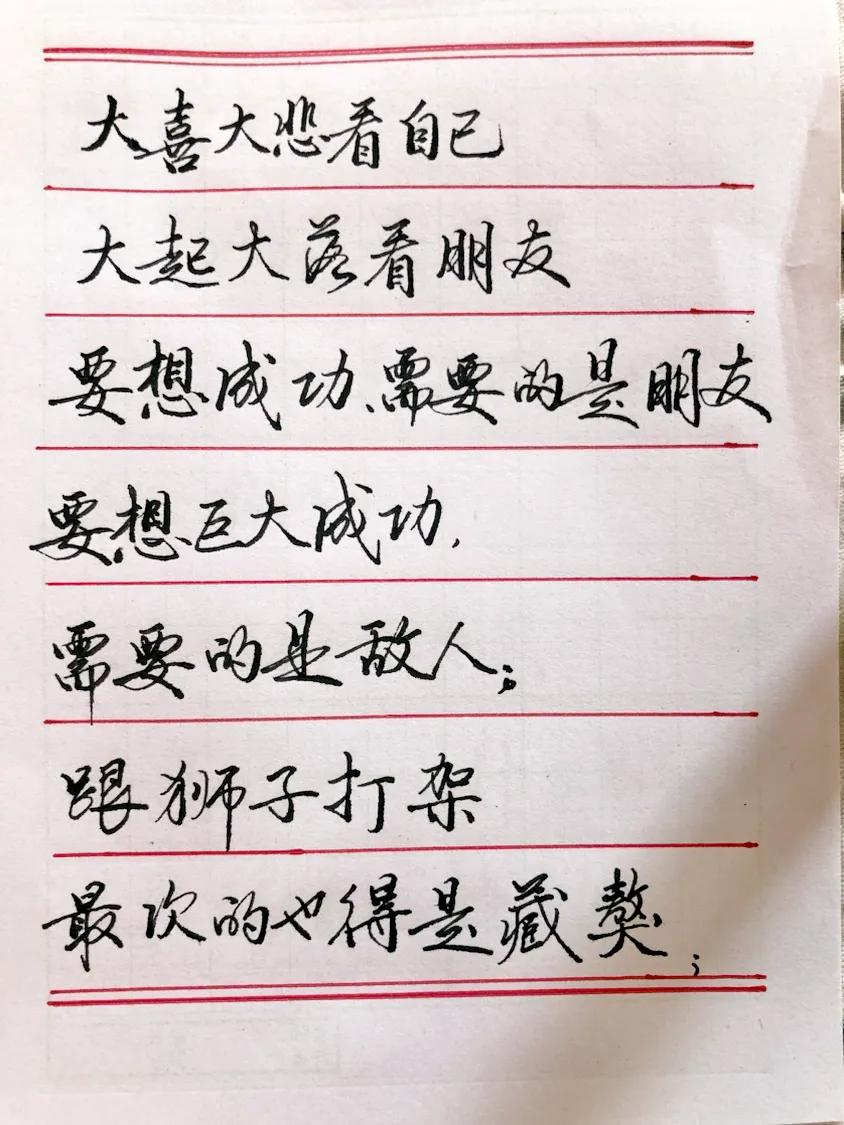 大喜大悲看自己
大起大落看朋友
要想成功、需要的是朋友
要想巨大成功,
需要的是敌人;
跟狮子打架
最次的也得是藏獒;